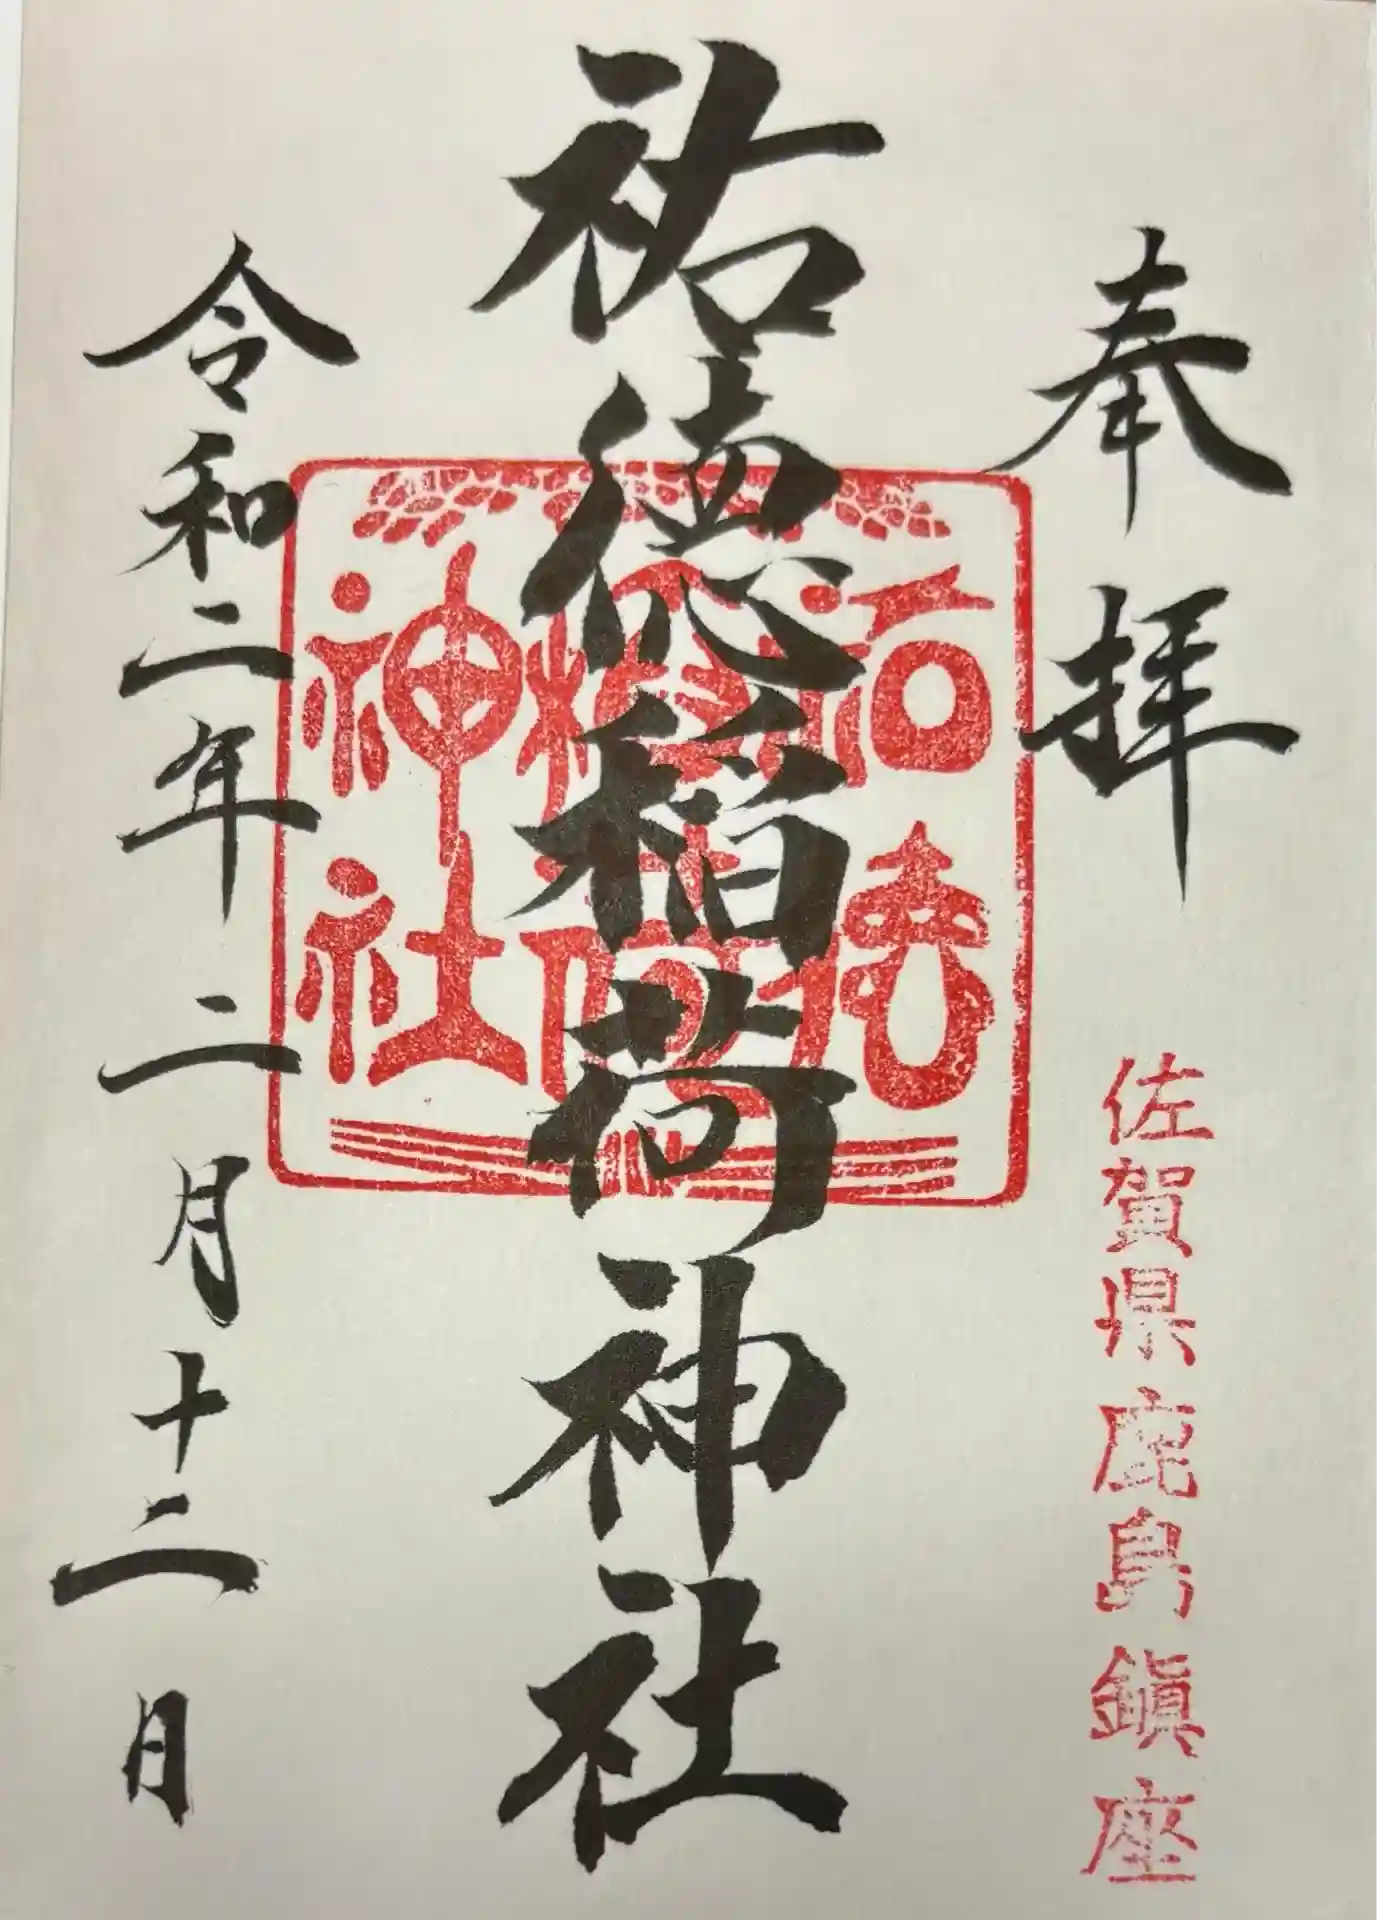 奉拝
佐賀県鹿島鎮座
祐徳稲荷神社
祐徳
稲荷
神社
令和二年二月十二日